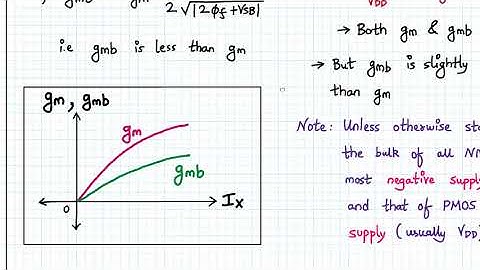 2√|2φf+VSB|
i.e gmb is less than gm
gm, gmb
gm
gmb
0
Ix
VDD
→ Both gm & gmb
→ But gmb is slightly
than gm
Note: Unless otherwise
the bulk of all
most negative supply
and that of PMOS
supply (usually VDD)